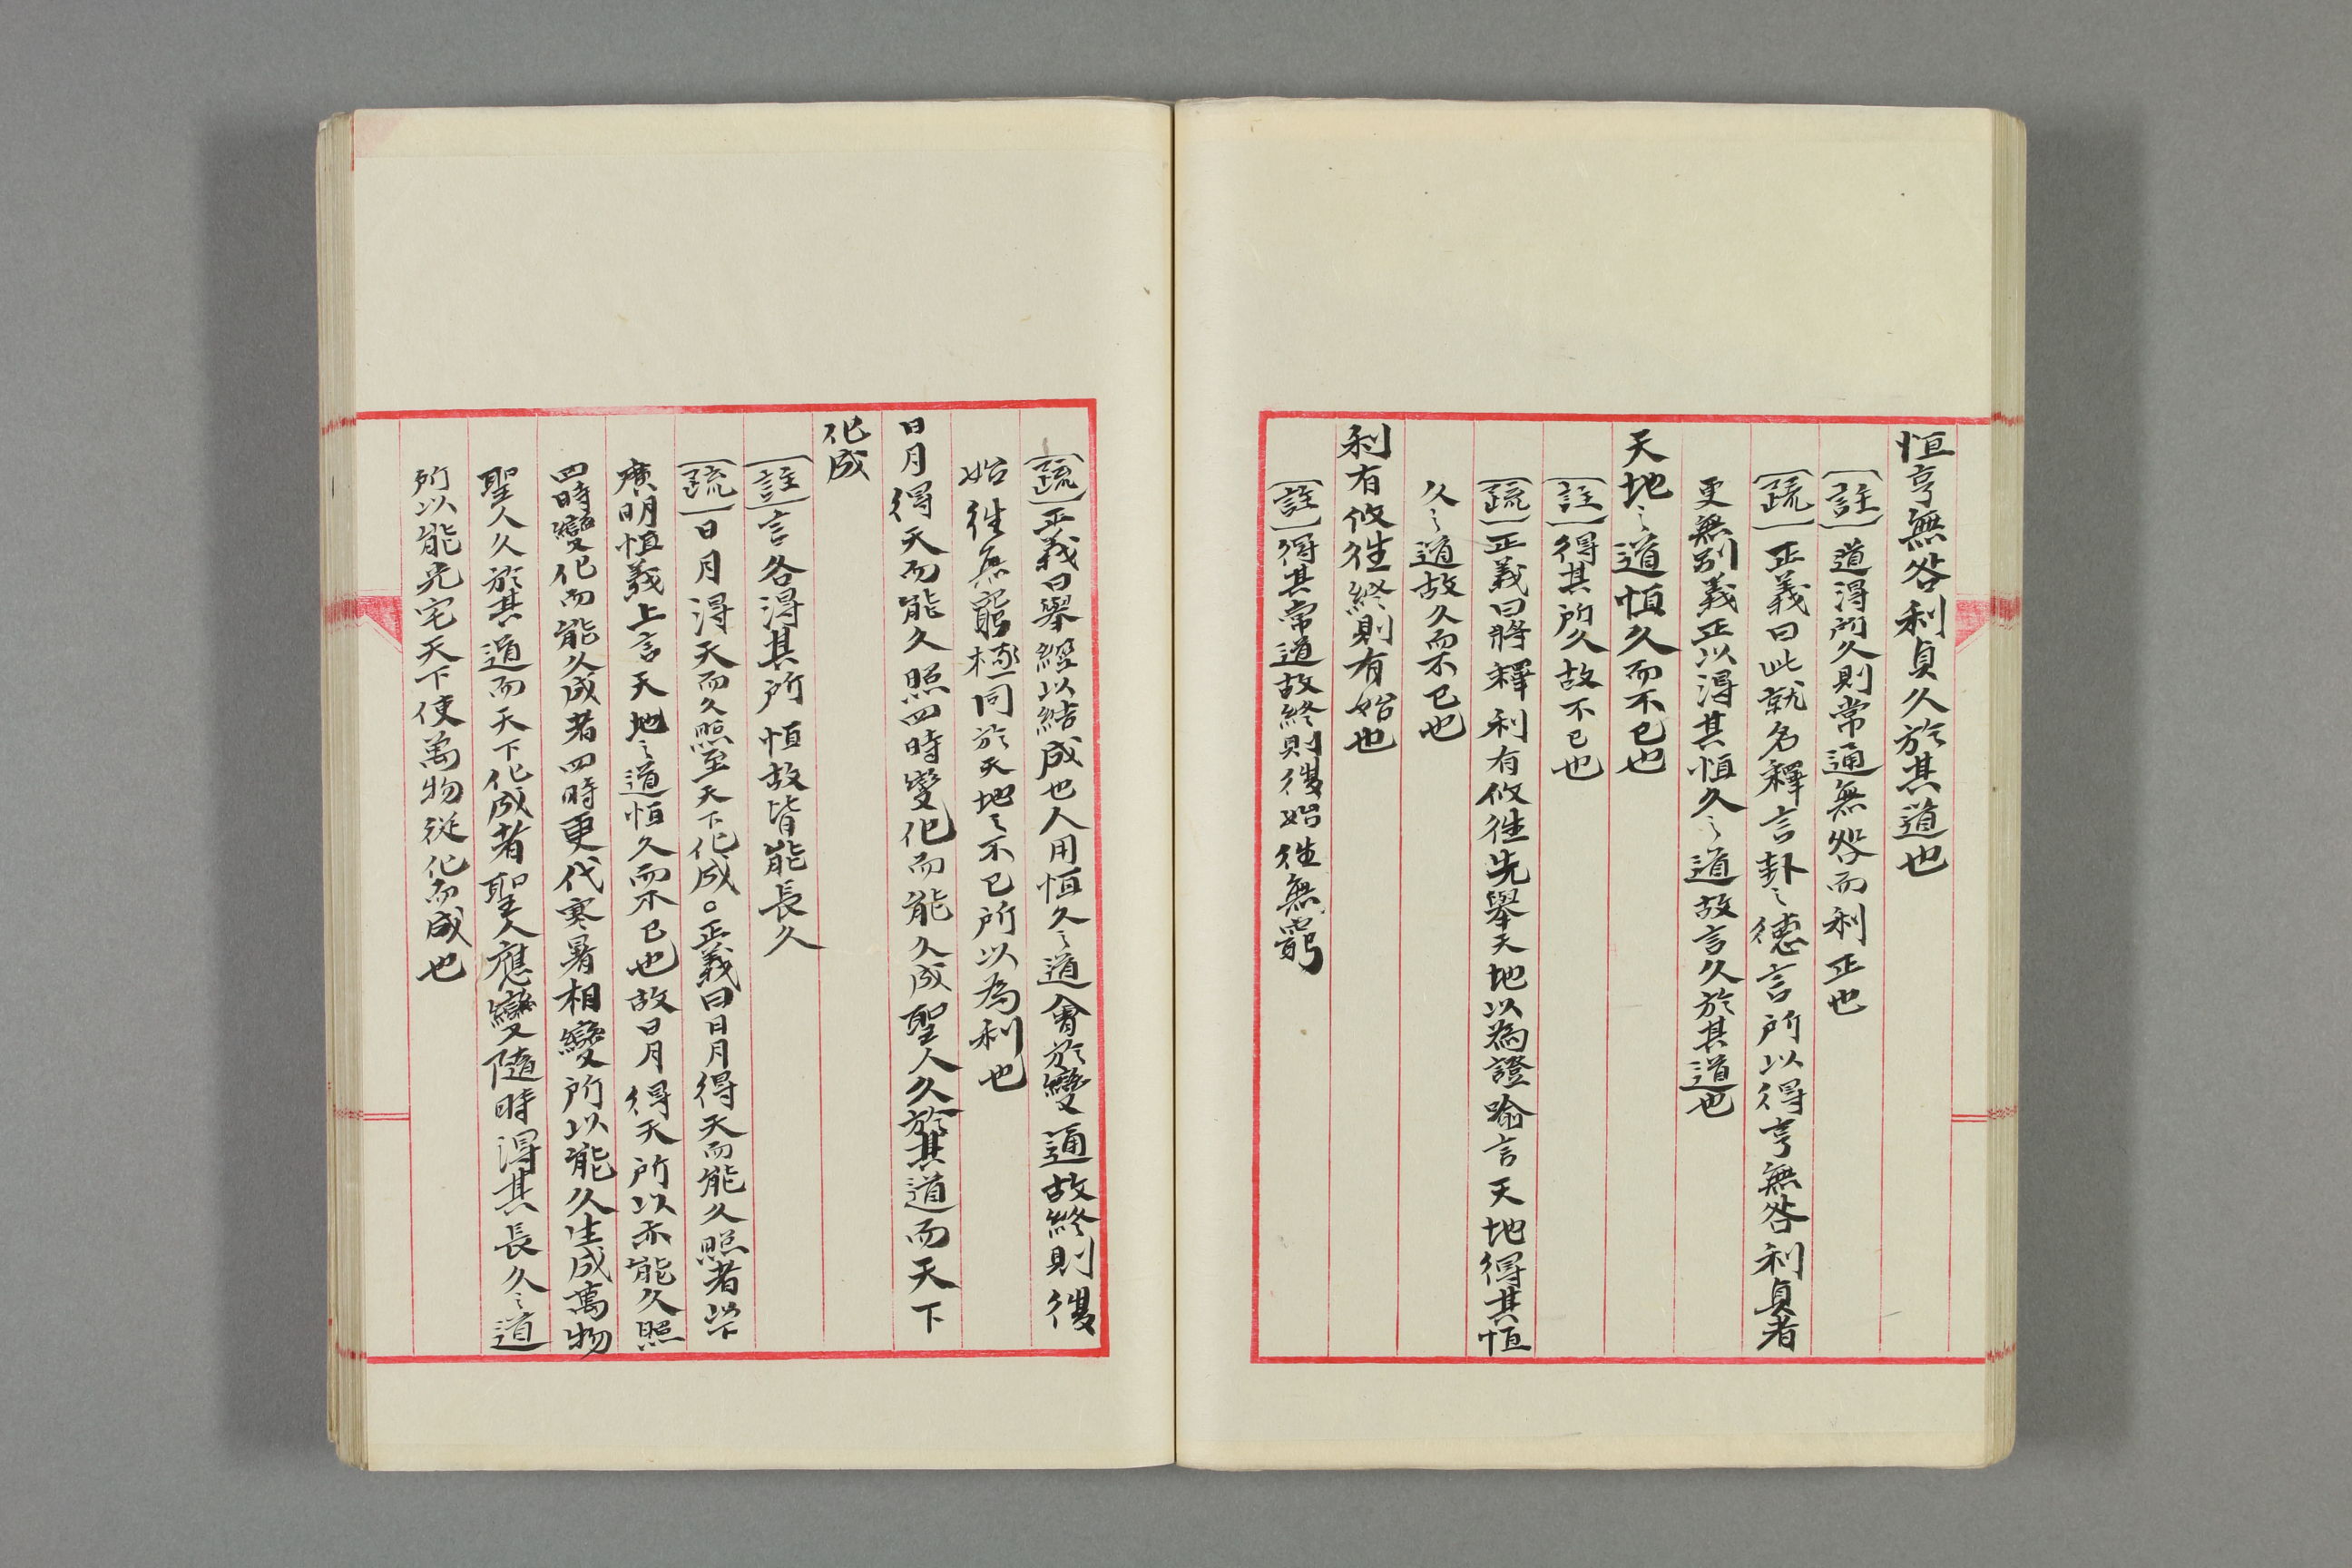 恒亨無咎利貞久於其道也
〔註〕道得所久則常通無咎而利正也
〔疏〕正義曰此就名釋言卦之德言所以得亨無咎利貞者
更無別義正以得其恒久之道故言久於其道也
天地之道恒久而不已也
〔註〕得其所久故不已也
〔疏〕正義曰將釋利有攸往先舉天地以為證喻言天地得其恒
久之道故久而不已也
利有攸往終則有始也
〔註〕得其常道故終則復始往無窮
〔疏〕正義曰舉經以結成也人用恒久之道會於變通故終則復
始往無窮極同於天地之不已所以為利也
日月得天而能久照四時變化而能久成聖人久於其道而天下
化成
〔註〕言各得其所恒故皆能長久
〔疏〕日月得天而久照至天下化成○正義曰日月得天而能久照者以下
廣明恒義上言天地之道恒久而不已也故日月得天所以亦能久照
四時變化而能久成者四時更代寒暑相變所以能久生成萬物
聖人久於其道而天下化成者聖人應變隨時得其長久之道
所以能光宅天下使萬物從化而成也